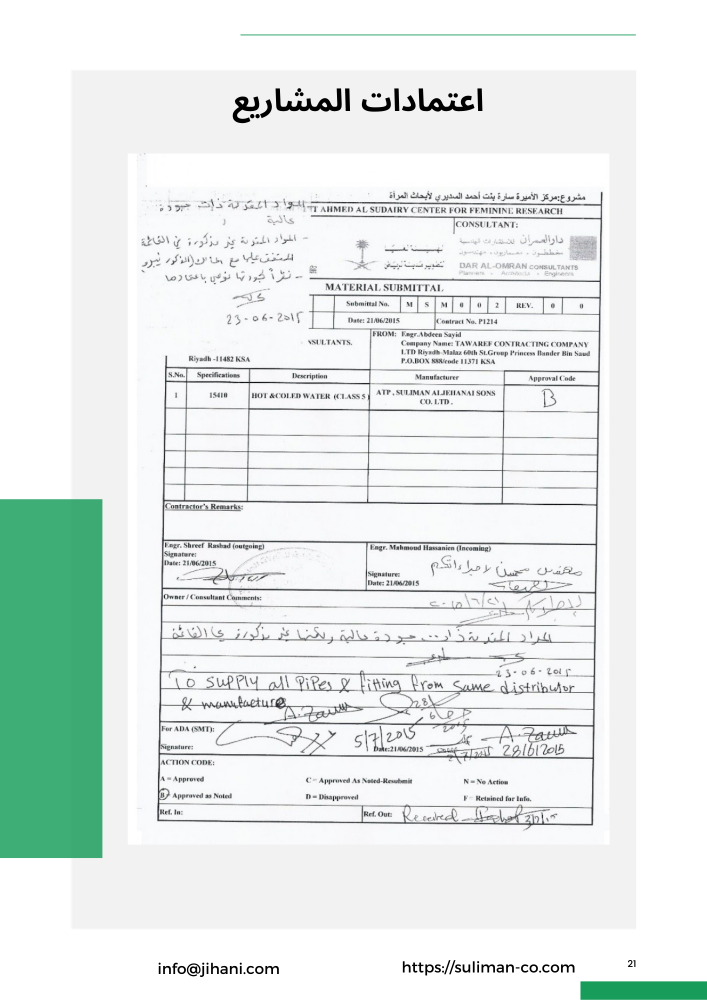 اعتمادات المشاريع
مشروع:مركز الأميرة سارة بنت أحمد السديري لأبحاث المرأة
T AHMED AL SUDAIRY CENTER FOR FEMININE RESEARCH
المواد المقدمة ذات جودة
عالية
CONSULTANT:
دار العمران
DAR AL-OMRAN CONSULTANTS
Planners - Architects - Engineers
23-06-2015
MATERIAL SUBMITTAL
Submittal No. M S M 0 0 2 REV. 0 0
Date: 21/06/2015 Contract No. P1214
NSULTANTS.
Riyadh -11482 KSA
FROM: Engr.Abdeen Sayid
Company Name: TAWAREF CONTRACTING COMPANY
LTD Riyadh-Malaz 60th St.Group Princess Bander Bin Saud
P.O.BOX 888/code 11371 KSA
S.No. Specifications Description Manufacturer Approval Code
1 15410 HOT &COLED WATER (CLASS 5) ATP , SULIMAN ALJEHANAI SONS CO. LTD . B
Contractor's Remarks:
Engr. Shreef Rashad (outgoing)
Signature:
Date: 21/06/2015
Engr. Mahmoud Hassanien (Incoming)
Signature:
Date: 21/06/2015
Owner / Consultant Comments:
23-06-2015
To supply all pipes & fitting from same distributor
& manufacture
For ADA (SMT):
Signature:
5/7/2015
Date:21/06/2015
28/6/2015
ACTION CODE:
A = Approved C = Approved As Noted-Resubmit N = No Action
B = Approved as Noted D = Disapproved F = Retained for Info.
Ref. In: Ref. Out: Received
info@jihani.com https://suliman-co.com 21